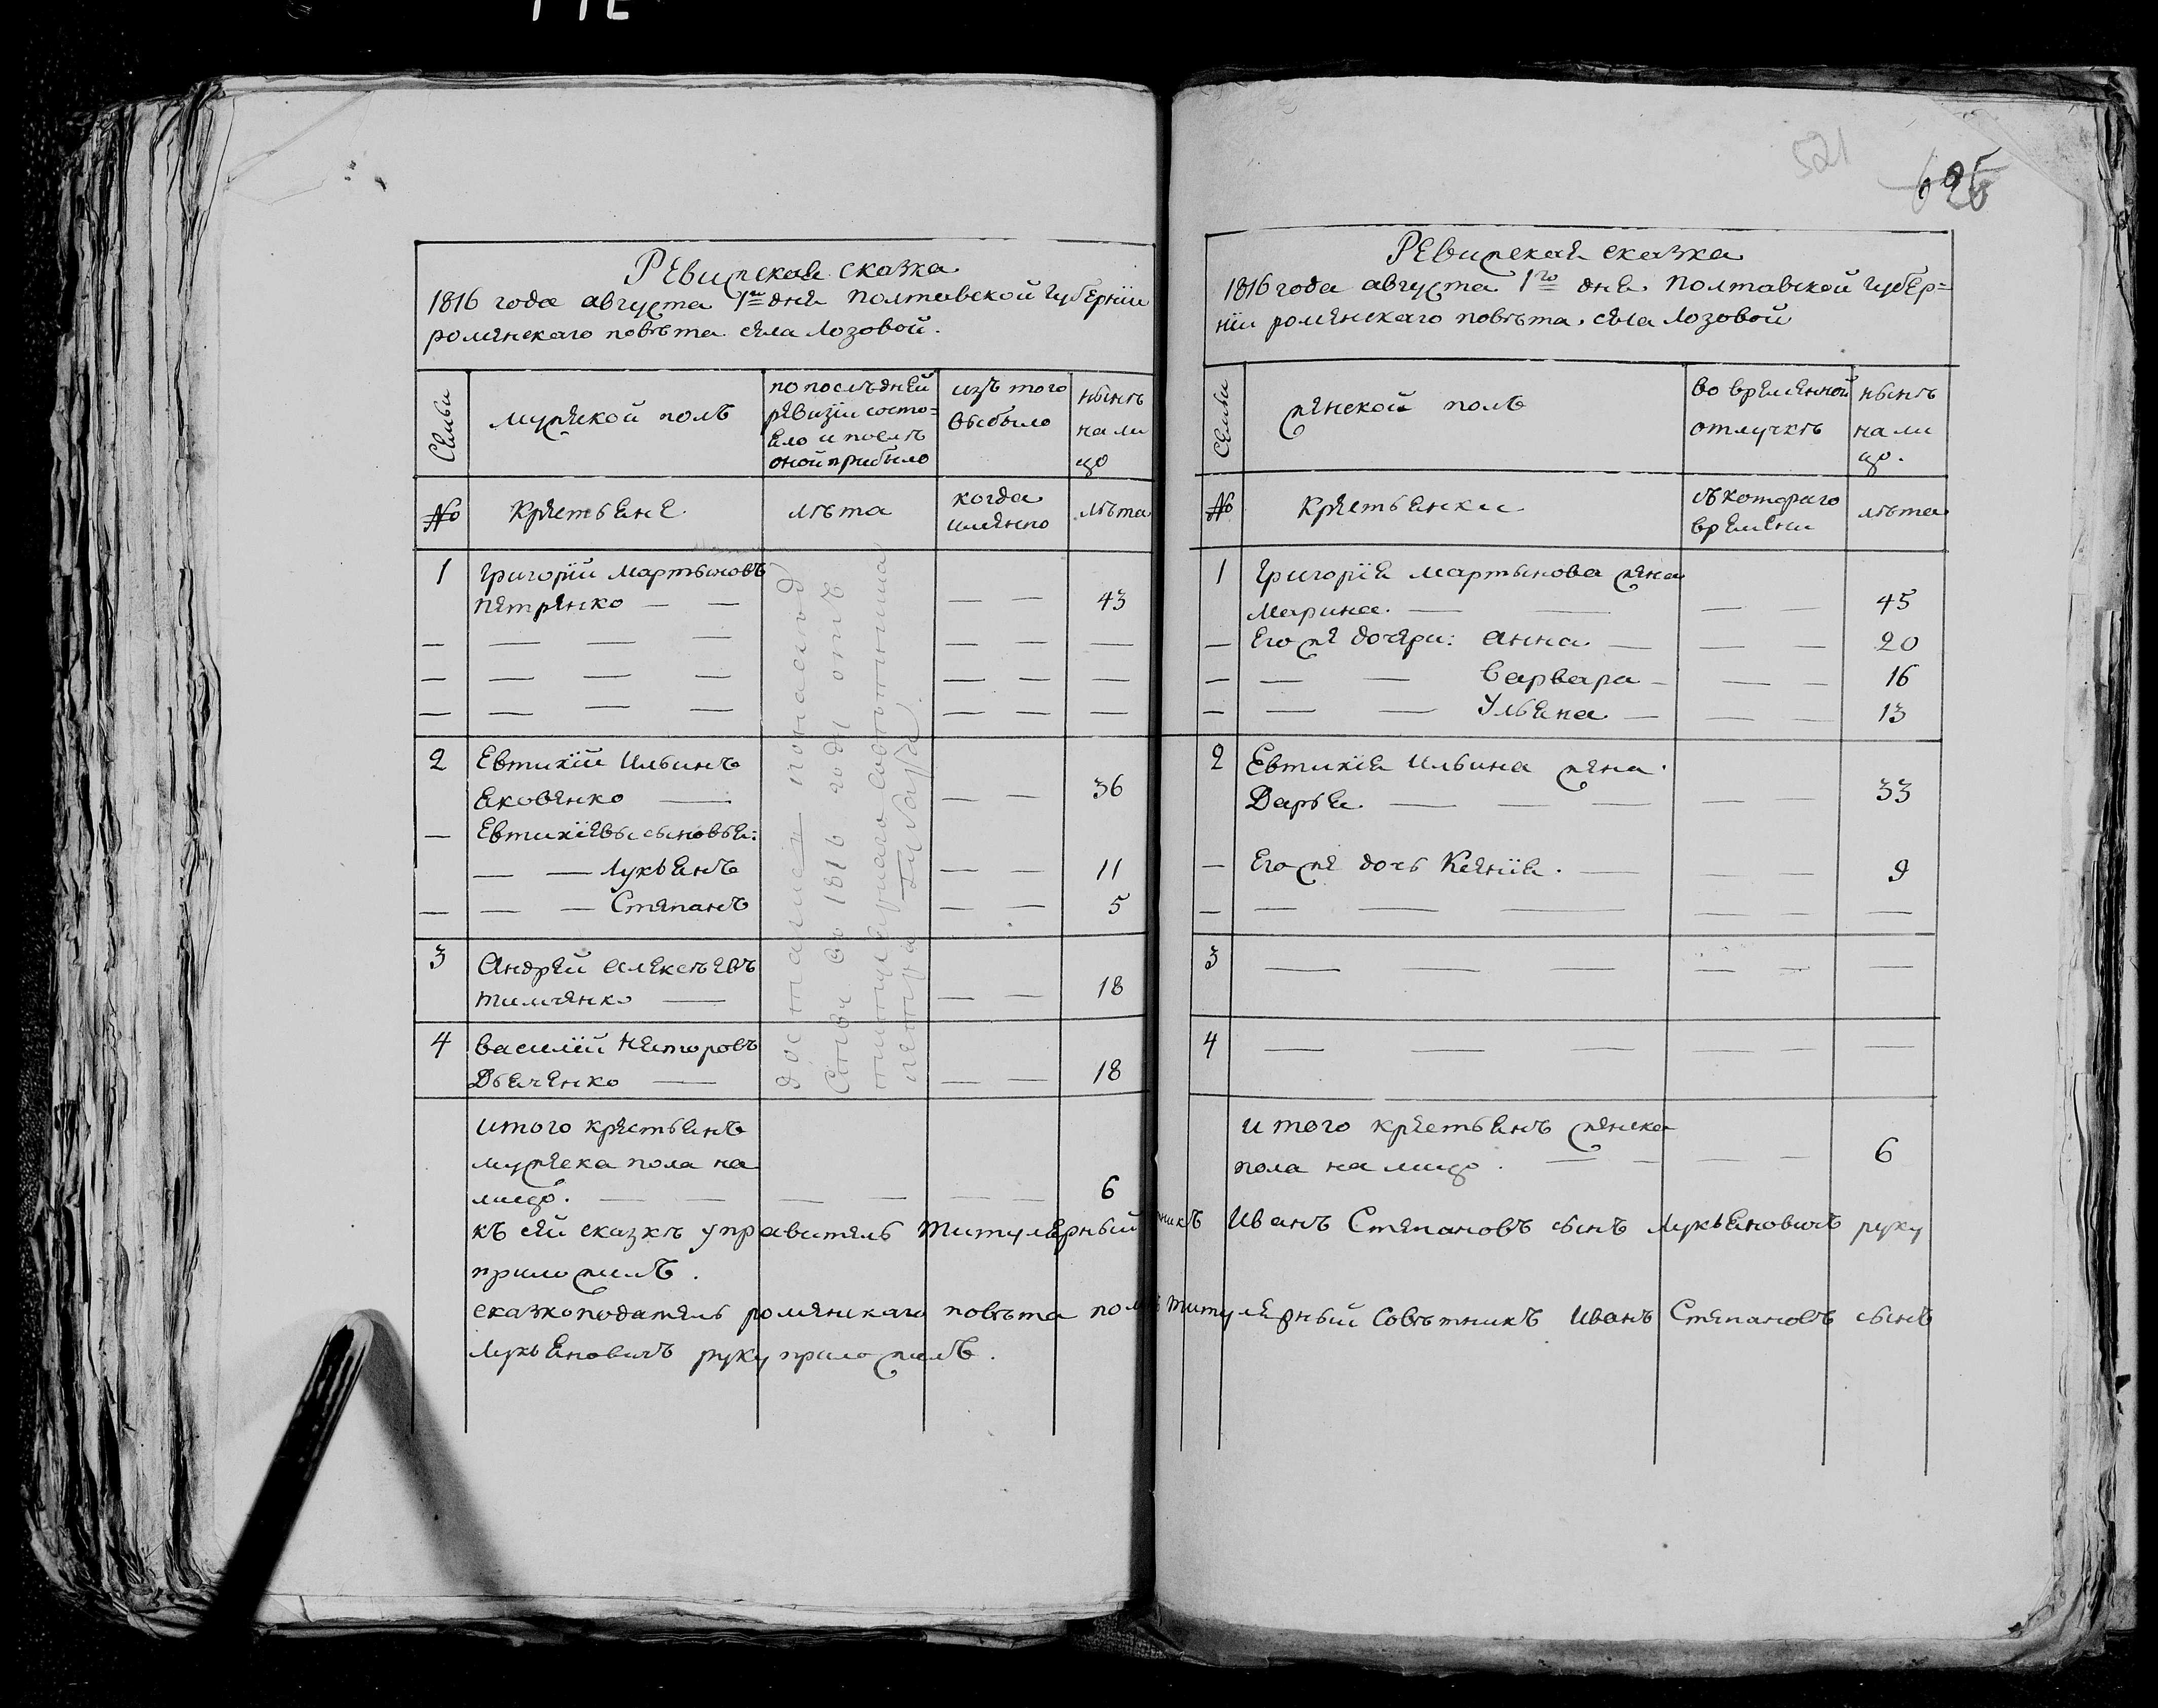 521
625
Ревижская сказка
1816 года августа 1го дня Полтавской губернїи
роменскаго повѣта села Лозовой.
Семьи
мужеской полъ
по послѣдней
ревизїи состо=
яло и послѣ
оной прибыло
изъ того
выбыло
нынѣ
на ли
цо
№
Крестьяне
лѣта
когда
имянно
лѣта
1
Григорїй Мартыновъ
Петренко — —
— —
43
2
Евтихїй Ильинъ
Яковенко —
— —
36
— Евтихїевы сыновья:
— — Лукьянъ
— —
11
— — — Степанъ
— —
5
3
Андрей Алексѣевъ
Тимченко —
— —
18
4
Василїй Несторовъ
Дьяченко —
— —
18
достались по наслѣд
ству въ 1816 году отъ
титулярнаго совѣтника
петра
итого крестьянъ
мужеска пола на
лицо. — — — — — —
6
Ревижская сказка
1816 года августа 1го дня Полтавской губер=
нїи роменскаго повѣта, села Лозовой
Семьи
женской полъ
во временной
отлучкѣ
нынѣ
на ли
цо.
№
Крестьянки
съ котораго
времени
лѣта
1
Григорїя Мартынова жена
Марина. — —
— —
45
— Его же дочери: Анна —
— —
20
— — — Варвара —
— —
16
— — — Ульяна —
— —
13
2
Евтихїя Ильина жена
Дарья. — — —
— —
33
— Его же дочь Ксенїя. —
— —
9
3
— — —
— —
—
4
— — —
— —
—
итого крестьянъ женска
пола на лицо. — — — —
6
къ сей сказкѣ управитель титулярный
никъ Иванъ Степановъ сынъ Лукьяновичъ руку
приложилъ.
сказкоподатель роменскаго повѣта пом титулярный Совѣтникъ Иванъ Степановъ сынъ
Лукьяновичъ руку приложилъ.